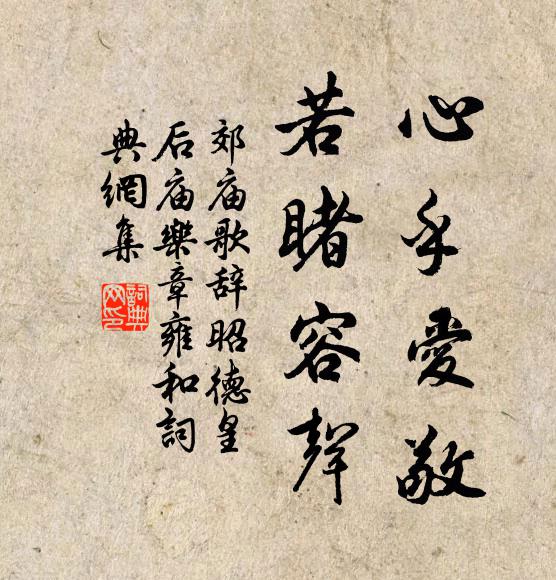 心乎愛敬
若睹容聲
郊庙歌辞昭德皇
后庙樂章雍和詞
典網集
詞典
网印